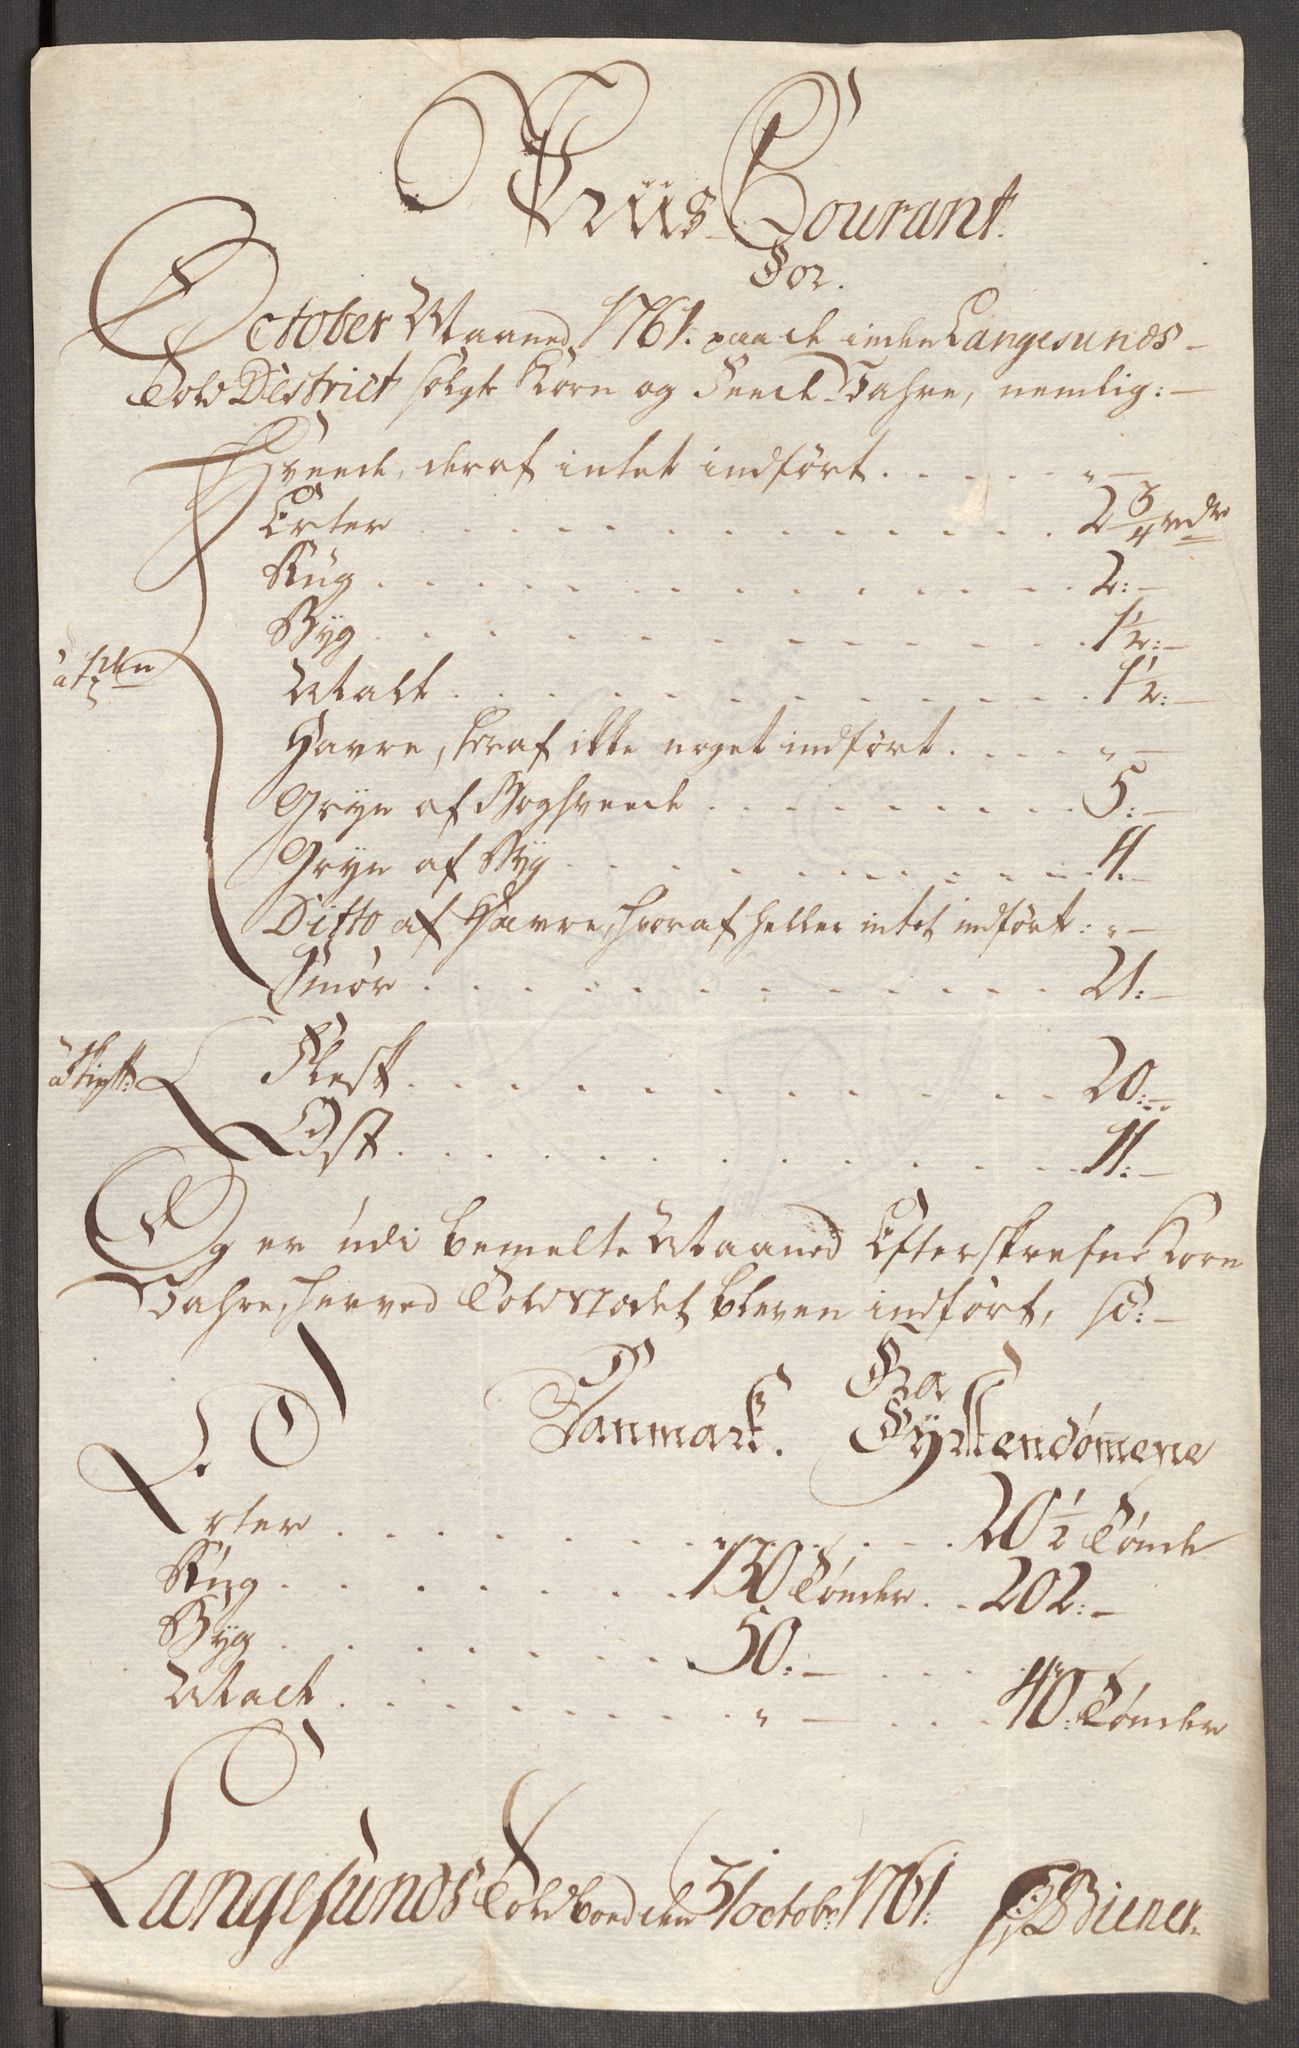 Priis Courant
For.
October Maaned 1761. paa de inden Langesunds-
Told District solgte Korn og Feede-Vahre, nemlig:-
Hveede, deraf intet indført . . . . . " -
Erter . . . . . . . . . . . . 2 3/4 rdr
Rug . . . . . . . . . . . . 2:-
Byg . . . . . . . . . . . . 1 1/2:-
à Tdn
Malt . . . . . . . . . . . . 1 1/2:-
Havre, hvoraf ikke noget indført . . . . " -
Gryn af Boghveede . . . . . . . . . 5:-
Gryn af Byg . . . . . . . . . . . 4:-
Ditto af Havre, hvoraf heller intet indført: " -
Smør . . . . . . . . . . . . 21:-
Flesk . . . . . . . . . . . . 20:-
Ost . . . . . . . . . . . . 11:-
Og er udi bemelte Maaned Efterskrefne Korn
Vahre, herved Toldstædet bleven indført, Sc:-
Fra
Danmark. Fyrstendømene
Erter . . . . . . . " . . . . 20 1/2 Tønde
Rug . . . . . . . 130 Tønder . . 202:-
Byg . . . . . . . 50:- . . . . "
Malt . . . . . . . " - . . . 40: Tønder
Langesunds Toldboed den 31 octobr: 1761: Biener.